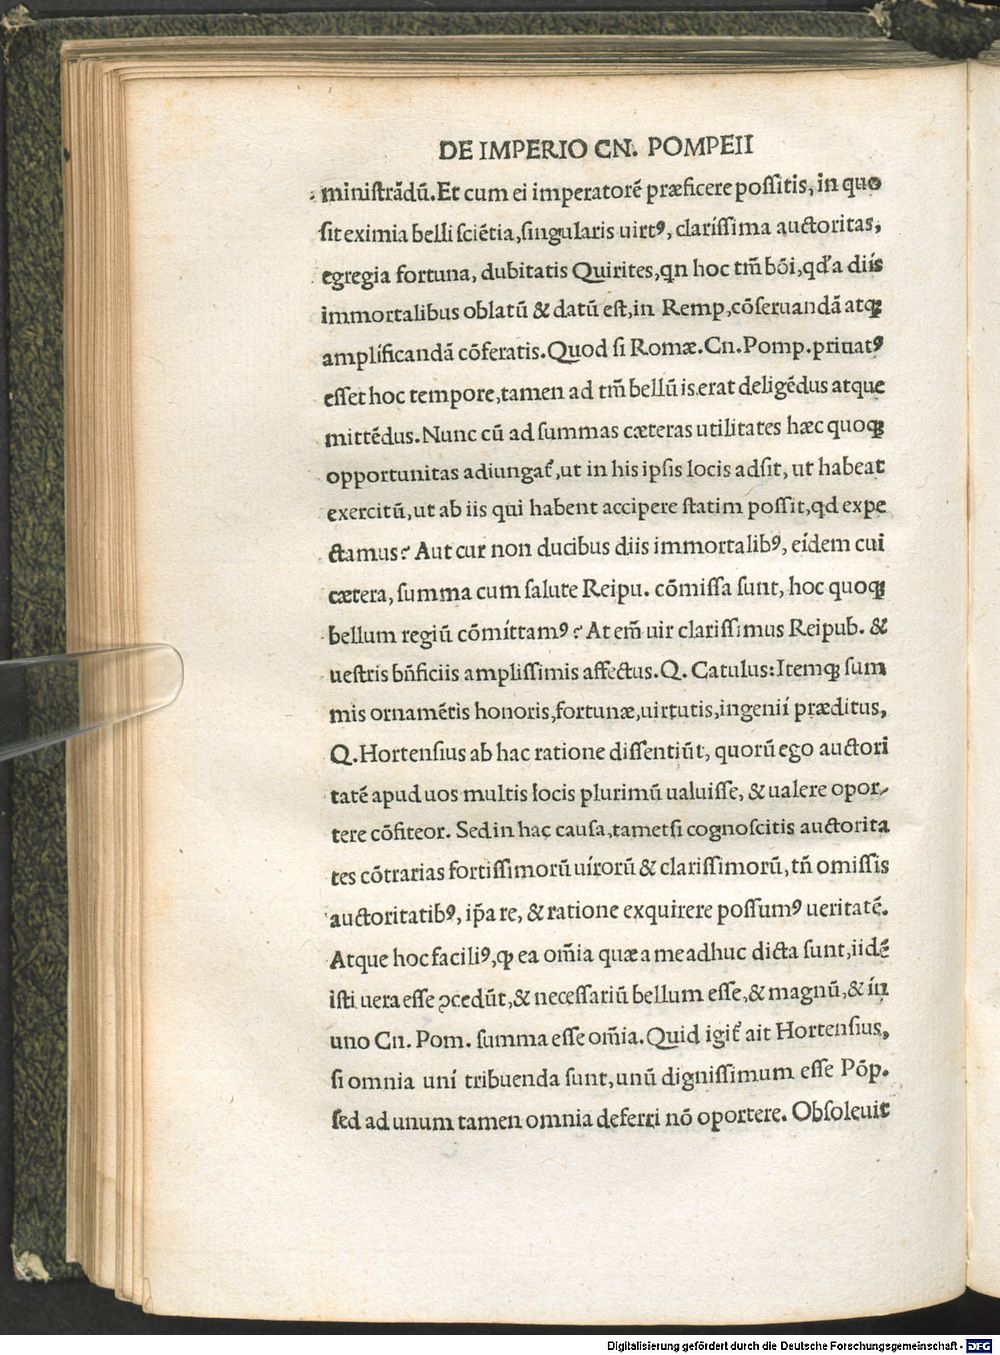 DE IMPERIO CN. POMPEII
miniſtrādū.Et cum ei imperatorē præficere poſſitis, in quo
ſit eximia belli ſciētia,ſingularis uirtꝰ, clariſſima auctoritas,
egregia fortuna, dubitatis Quirites,qn hoc tm̄ bōi,qd'a diis
immortalibus oblatū & datū eſt,in Remp,cōſeruandā atqꝫ
amplificandā cōferatis.Quod ſi Romæ.Cn.Pomp.priuatꝰ
eſſet hoc tempore,tamen ad tm̄ bellū is.erat deligēdus atque
mittēdus.Nunc cū ad ſummas cæteras utilitates hæc quoqꝫ
opportunitas adiungat̄,ut in his ipſis locis adſit, ut habeat
exercitū,ut ab iis qui habent accipere ſtatim poſſit,qd expe
ctamus? Aut cur non ducibus diis immortalibꝰ, eídem cui
cætera, ſumma cum ſalute Reipu. cōmiſſa ſunt, hoc quoqꝫ
bellum regiū cōmíttamꝰ? At em̄ uir clariſſimus Reipub. &
ueſtris bn̄ficiis ampliſſimis affectus.Q. Catulus:Itemqꝫ ſum
mis ornamētis honoris,fortunæ,uirtutis,ingenií præditus,
Q.Hortenſius ab hac ratione diſſentiūt, quorū ego auctori
tatē apud uos multis locis plurimū ualuiſſe, & ualere opor-
tere cōfiteor. Sed in hac cauſa,tametſi cognoſcitis auctorita
tes cōtrarias fortiſſimorū uírorū & clariſſimorū, tn̄ omiſſis
auctoritatibꝰ, ip̄a re, & ratione exquirere poſſumꝰ ueritatē.
Atque hoc faciliꝰ,ꝙ ea om̄ia quæ a me adhuc dicta ſunt,iidē
iſti uera eſſe ꝯcedūt,& neceſſariū bellum eſſe,& magnū,& in
uno Cn. Pom. ſumma eſſe om̄ia.Quid igit̄ ait Hortenſius,
ſi omnia uní tribuenda ſunt,unū digniſſimum eſſe Pōp.
ſed ad unum tamen omnia deferri nō oportere. Obſoleuit
Digitalisierung gefördert durch die Deutsche Forschungsgemeinschaft - DFG